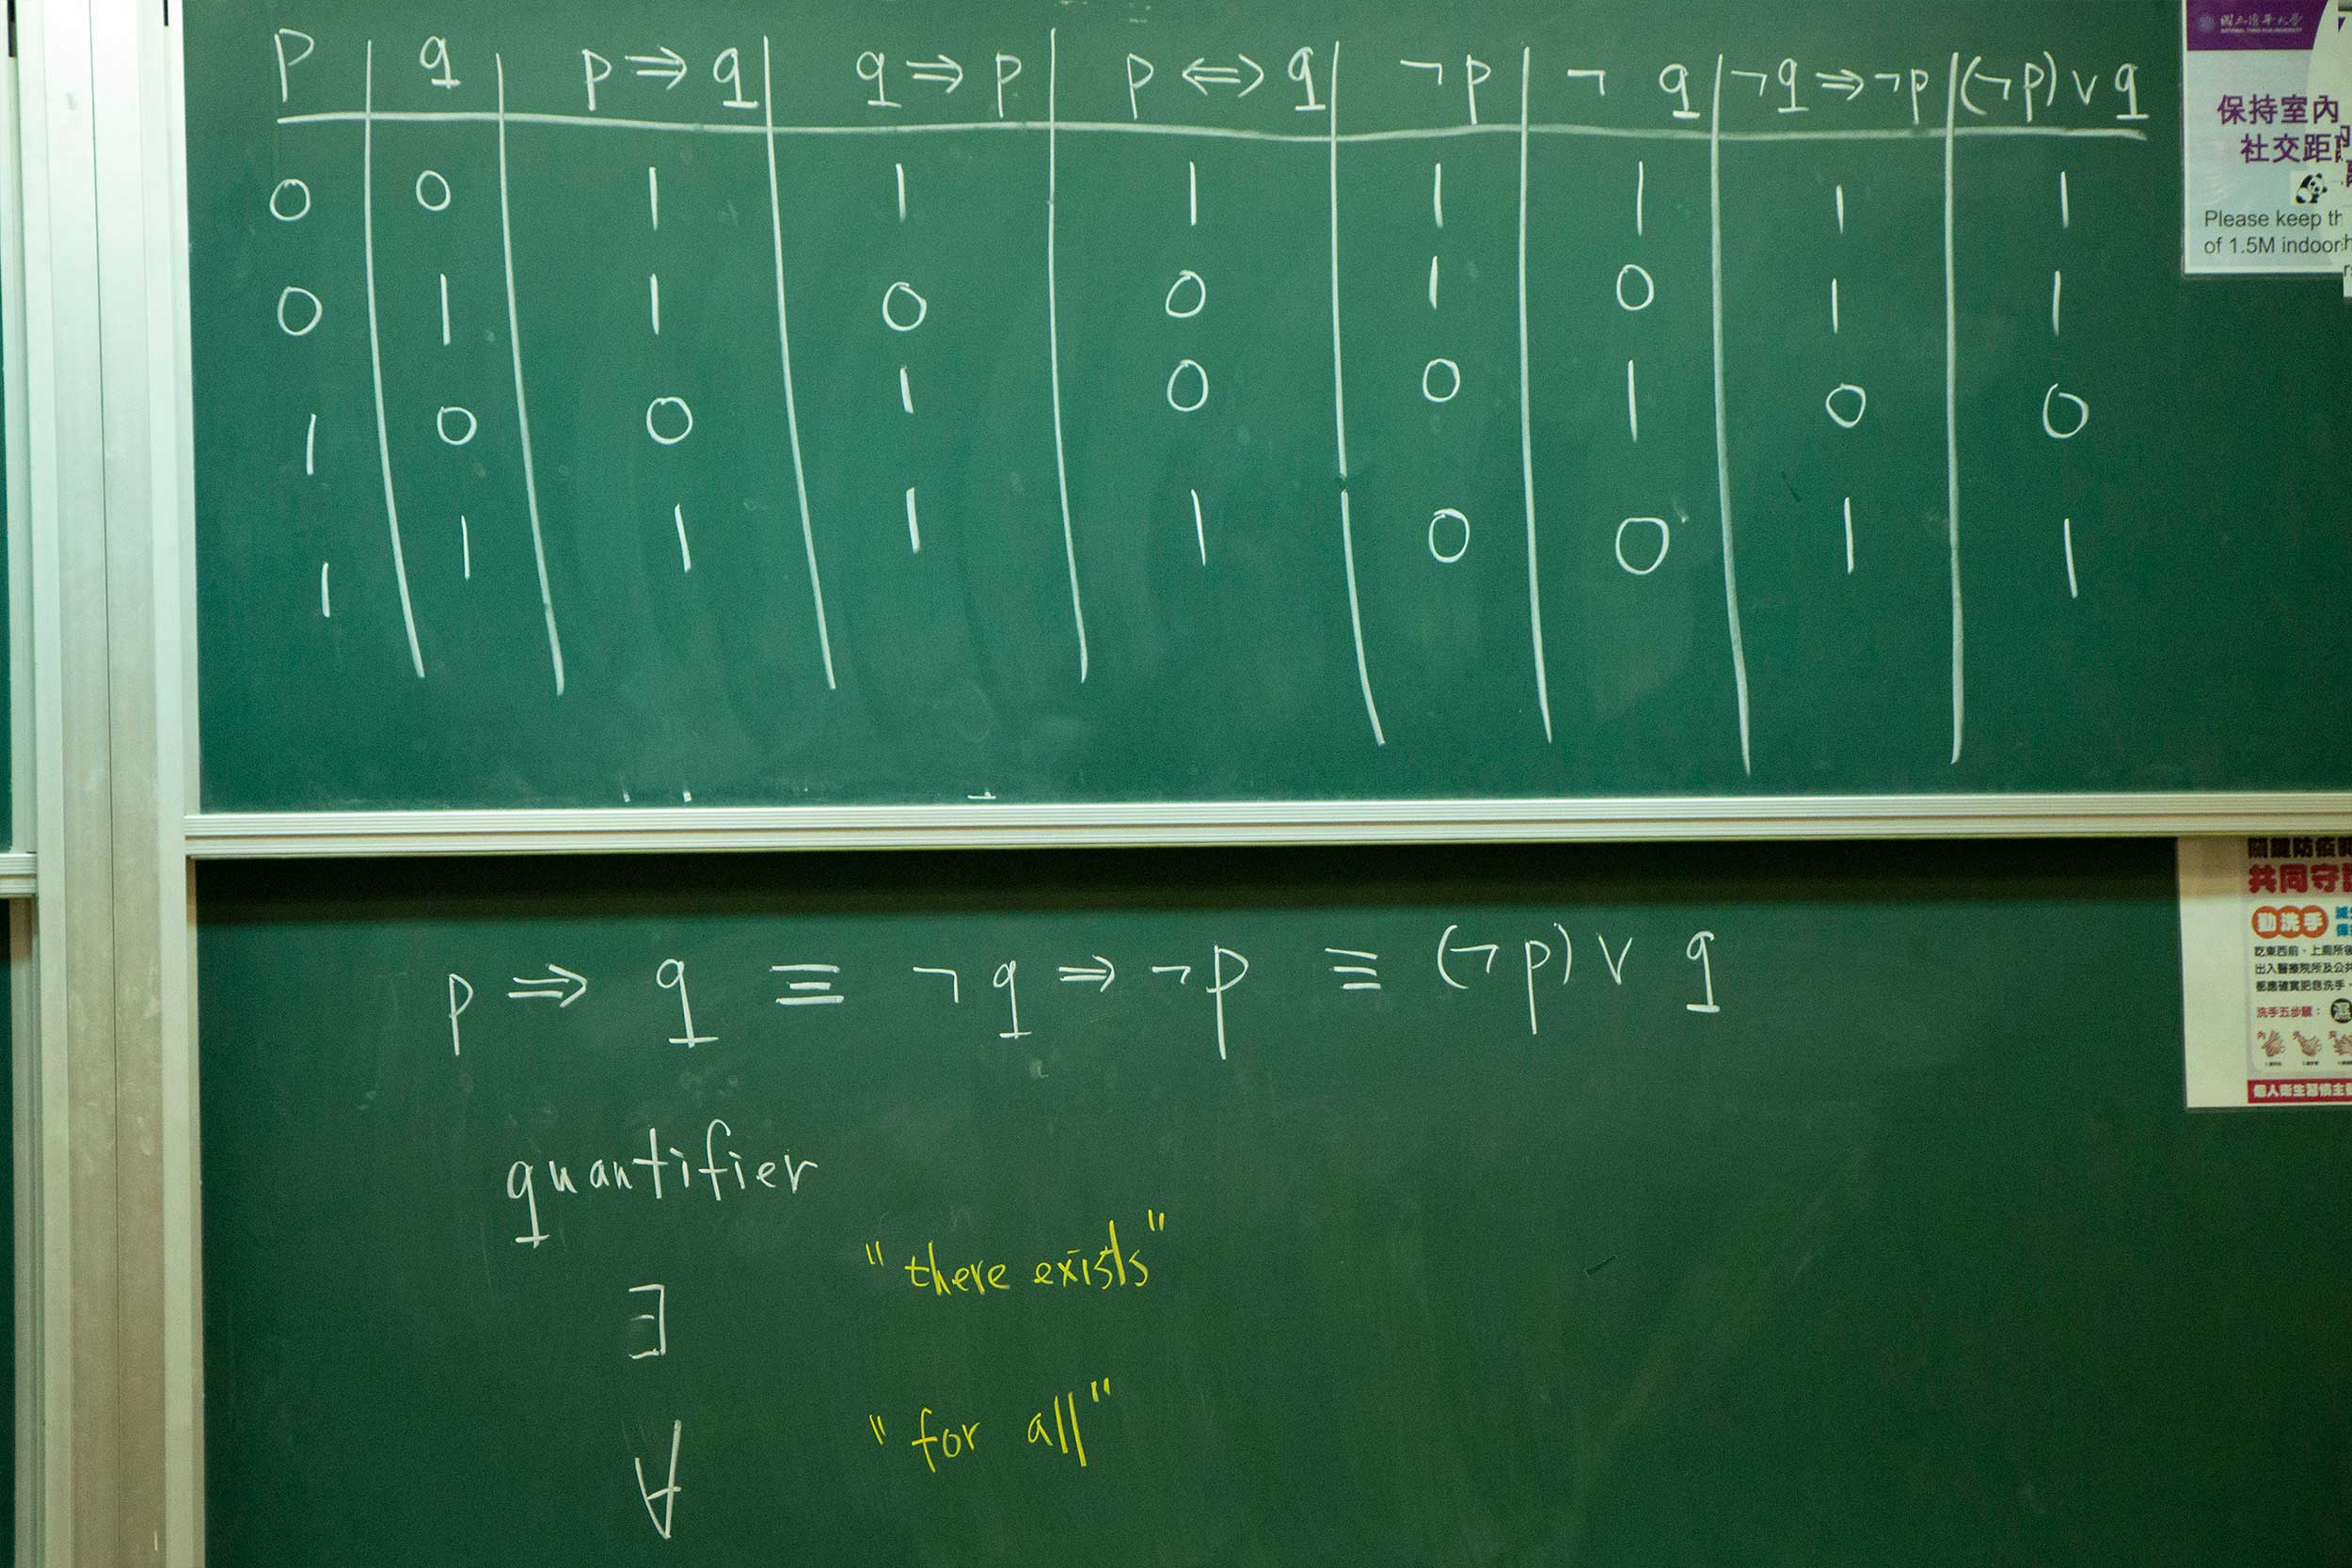 p q p ⇒ q q ⇒ p p ⇔ q ¬p ¬ q ¬q ⇒ ¬p (¬p) ∨ q
0 0 1 1 1 1 1 1 1
0 1 1 0 0 1 0 1 1
1 0 0 1 0 0 1 0 0
1 1 1 1 1 0 0 1 1
p ⇒ q ≡ ¬q ⇒ ¬p ≡ (¬p) ∨ q
quantifier
∃ "there exists"
∀ "for all"
國立清華大學
NATIONAL TSING HUA UNIVERSITY
保持室內
社交距
Please keep
of 1.5M indoor
關鍵防疫
共同守
勤洗手
吃東西前、上廁所後
出入醫療院所及公共
都應確實肥皂洗手
洗手五步驟：濕
內 外 夾
個人衛生習慣主